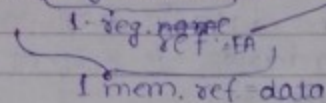 1. reg. name
ref. EA
1 mem. ref = data